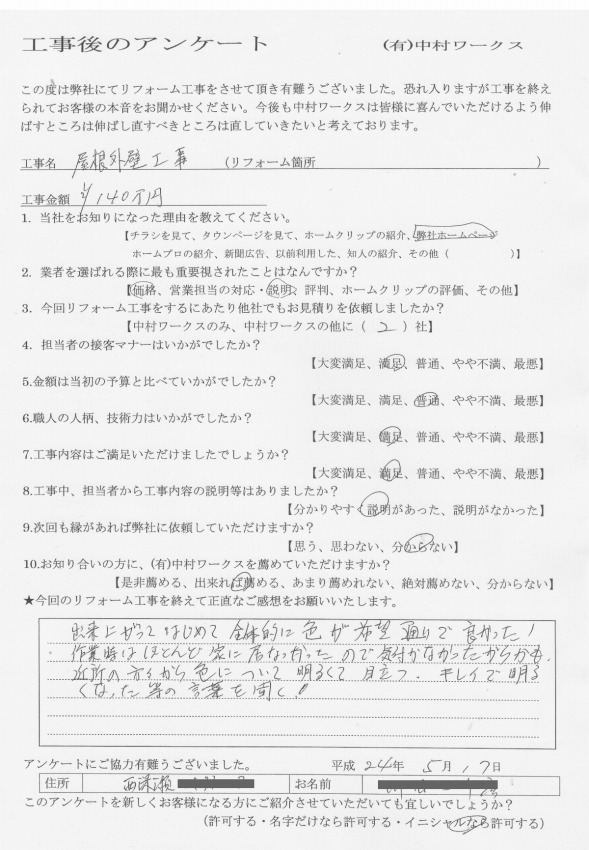 工事後のアンケート (有)中村ワークス
この度は弊社にてリフォーム工事をさせて頂き有難うございました。恐れ入りますが工事を終え
られてお客様の本音をお聞かせください。今後も中村ワークスは皆様に喜んでいただけるよう伸
ばすところは伸ばし直すべきところは直していきたいと考えております。
工事名 屋根外壁工事 (リフォーム箇所 )
工事金額 140万円
1. 当社をお知りになった理由を教えてください。
【チラシを見て、タウンページを見て、ホームクリップの紹介、弊社ホームページ
ホームプロの紹介、新聞広告、以前利用した、知人の紹介、その他( )】
2. 業者を選ばれる際に最も重要視されたことはなんですか?
【価格、営業担当の対応・説明、評判、ホームクリップの評価、その他】
3. 今回リフォーム工事をするにあたり他社でもお見積りを依頼しましたか?
【中村ワークスのみ、中村ワークスの他に( 2 )社】
4. 担当者の接客マナーはいかがでしたか?
【大変満足、満足、普通、やや不満、最悪】
5.金額は当初の予算と比べていかがでしたか?
【大変満足、満足、普通、やや不満、最悪】
6.職人の人柄、技術力はいかがでしたか?
【大変満足、満足、普通、やや不満、最悪】
7.工事内容はご満足いただけましたでしょうか?
【大変満足、満足、普通、やや不満、最悪】
8.工事中、担当者から工事内容の説明等はありましたか?
【分かりやすく説明があった、説明がなかった】
9.次回も縁があれば弊社に依頼していただけますか?
【思う、思わない、分からない】
10.お知り合いの方に、(有)中村ワークスを薦めていただけますか?
【是非薦める、出来れば薦める、あまり薦めれない、絶対薦めない、分からない】
★今回のリフォーム工事を終えて正直なご感想をお願いいたします。
出来上がってはじめて全体的に色が希望通りで良かった!
作業時はほとんど家に居なかったので気付かなかったからかも.
近所の方々から色について明るくて目立つ.キレイで明る
くなった等の言葉を聞く!
アンケートにご協力有難うございました。 平成24年5月17日
住所 お名前
このアンケートを新しくお客様になる方にご紹介させていただいても宜しいでしょうか?
(許可する・名字だけなら許可する・イニシャルなら許可する)